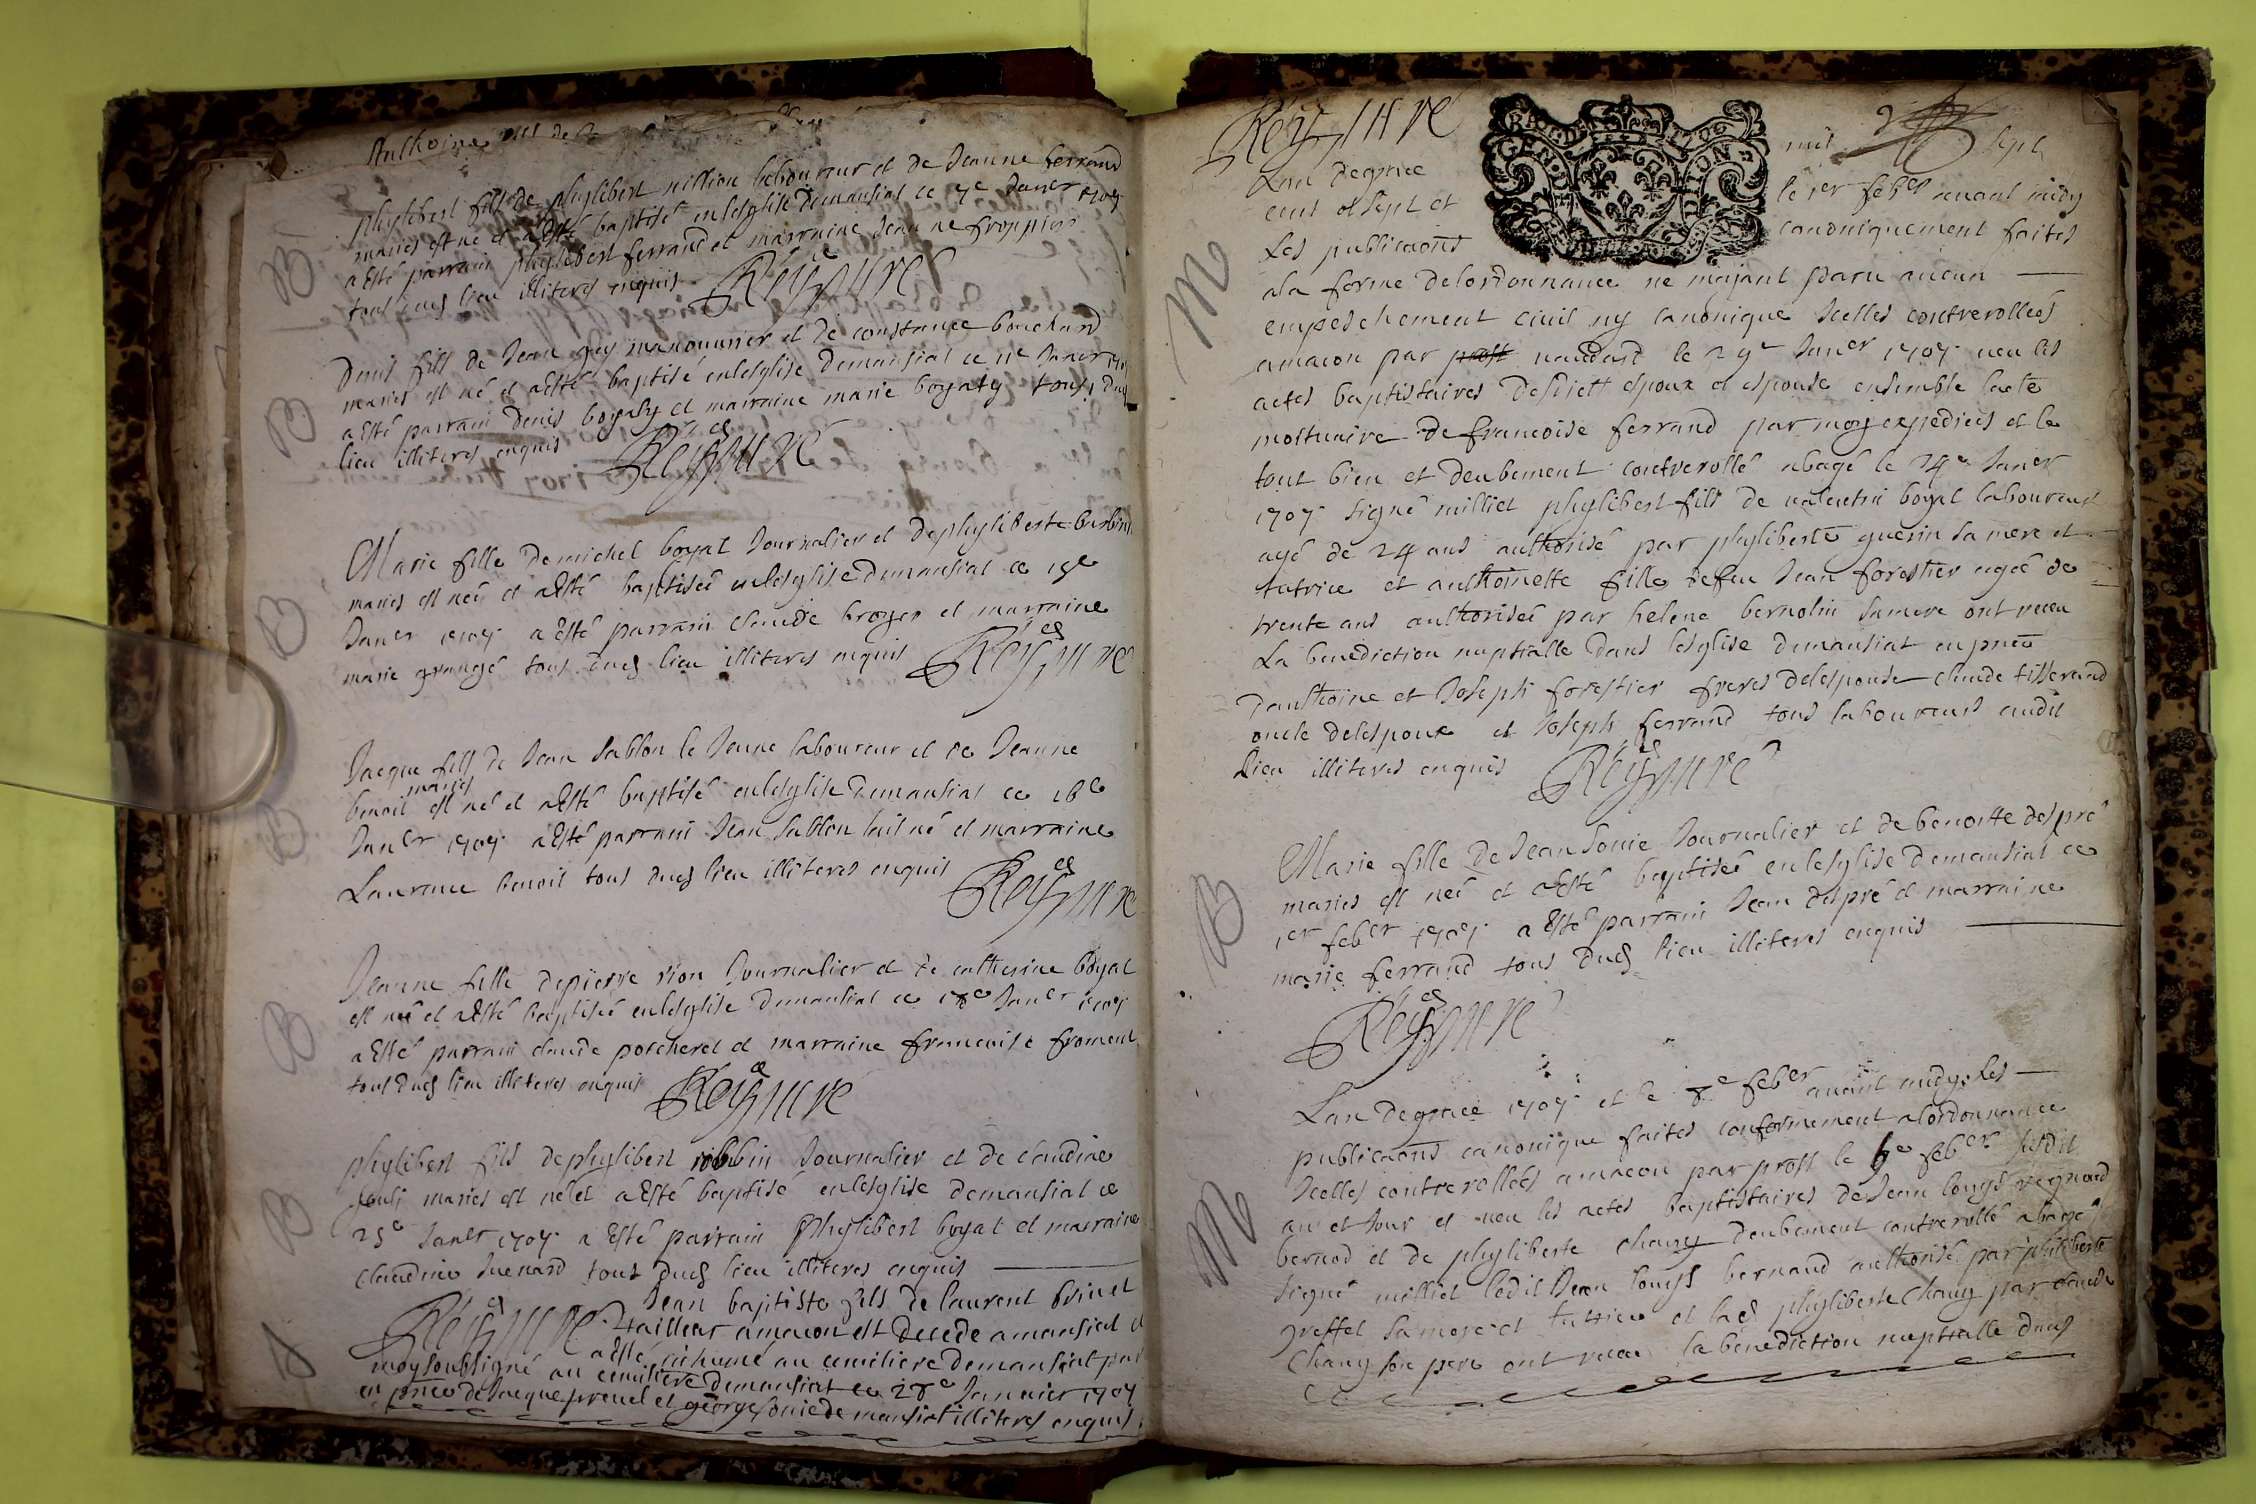 Anthoine fils de
B
phylibert fils de phylibert million laboureur et de Jeanne ferrand
maries est né et a Esté baptisé en lesglise demansiat ce 7e Janer 1707
a Esté parrain phylibert ferrand et marraine Jeanne froppier
tous dud lieu illiteres enquis Rey curé
B
Denis fils de Jean guy manouvrier et de constance bouchard
maries est né et a Esté baptisé en lesglise demansiat ce 11e Janer
a Esté parrain Denis boyaty et marraine marie boyaty tous dud
lieu illiteres enquis Rey curé
B
Marie fille de michel boyat Journalier et de phyliberte
maries est neé et a Esté baptiseé en lesglise demansiat ce 15e
Janer 1707 a Esté parrain claude broyer et marraine
marie grangé tous dud lieu illiteres enquis Rey curé
B
Jacque fils de Jean Sablon le Jeune laboureur et de Jeanne
benoit maries est né et a Esté baptisé en lesglise demansiat ce 16e
Janer 1707 a Esté parrain Jean Sablon laisné et marraine
Laurence benoit tous dud lieu illiteres enquis Rey curé
B
Jeanne fille de pierre rion Journalier et de catherine boyat
est neé et a Esté baptiseé en lesglise demansiat ce 18e Janer 1707
a Esté parrain claude porcheret et marraine francoise froment
tous dud lieu illiteres enquis Rey curé
B
phylibert fils de phylibert robbin Journalier et de claudine
maries est né et a Esté baptisé en lesglise demansiat ce
25e Janer 1707 a Esté parrain phylibert boyat et marraine
claudine Juenard tous dud lieu illiteres enquis
Rey curé
Jean baptiste fils de laurent brinet
tailleur a macon est decede a mansiat et
a Esté inhumé au cemitiere demansiat par
moy soubsigné au cemitiere demansiat ce 28e Janvier 1707
en pnce de Jacque prevel et george Sonie demansiat illiteres enquis
Rey curé
GEN DIJON
M
Lan de grace mil sept
cens et sept et le 1er feber avant midy
Les publicaons canoniquement faites
a la forme de lordonnance ne mayant paru aucun
empeschement civil ny canonique Icelles controrolleés
a macon par prost naudard le 29e Janer 1707 veu les
actes baptistaires desditt espoux et espouse ensemble lacte
mortuaire de francoise ferrand par moy expediées et le
tout bien et deubement controrollé a bagé le 24e Janer
1707 signé milliet phylibert fils de valentin boyat laboureur
agé de 24 ans authorisé par phyliberte guerin sa mere et
tutrice et anthoinette fille de feu Jean forestier ageé de
trente ans authoriseé par helene bernolin sa mere ont receu
La benediction nuptialle dans lesglise demansiat en pnce
danthoine et Joseph forestier freres de lespouse claude tisserand
oncle de lespoux et Joseph ferrand tous laboureurs dudit
lieu illiteres enquis Rey curé
B
Marie fille de Jean Sonie Journalier et de benoitte despré
maries est neé et a Esté baptiseé en lesglise demansiat ce
1er feber 1707 a Esté parrain Jean despré et marraine
marie ferrand tous dud lieu illiteres enquis
Rey curé
M
Lan de grace 1707 et le 8e feber avant midy Les
publicaons canonique faites conformement a lordonnance
Icelles controrolleés a macon par prost le feber susdit
an et Jour et veu les actes baptistaires de Jean louys regnaud
bernod et de phyliberte chany deubement controrollé a bagé
signé milliet ledit Jean louys bernaud authorisé par philiberte
greffet sa mere et tutrice et lad phyliberte chany par claude
Chany son pere ont receu la benediction nuptialle dans